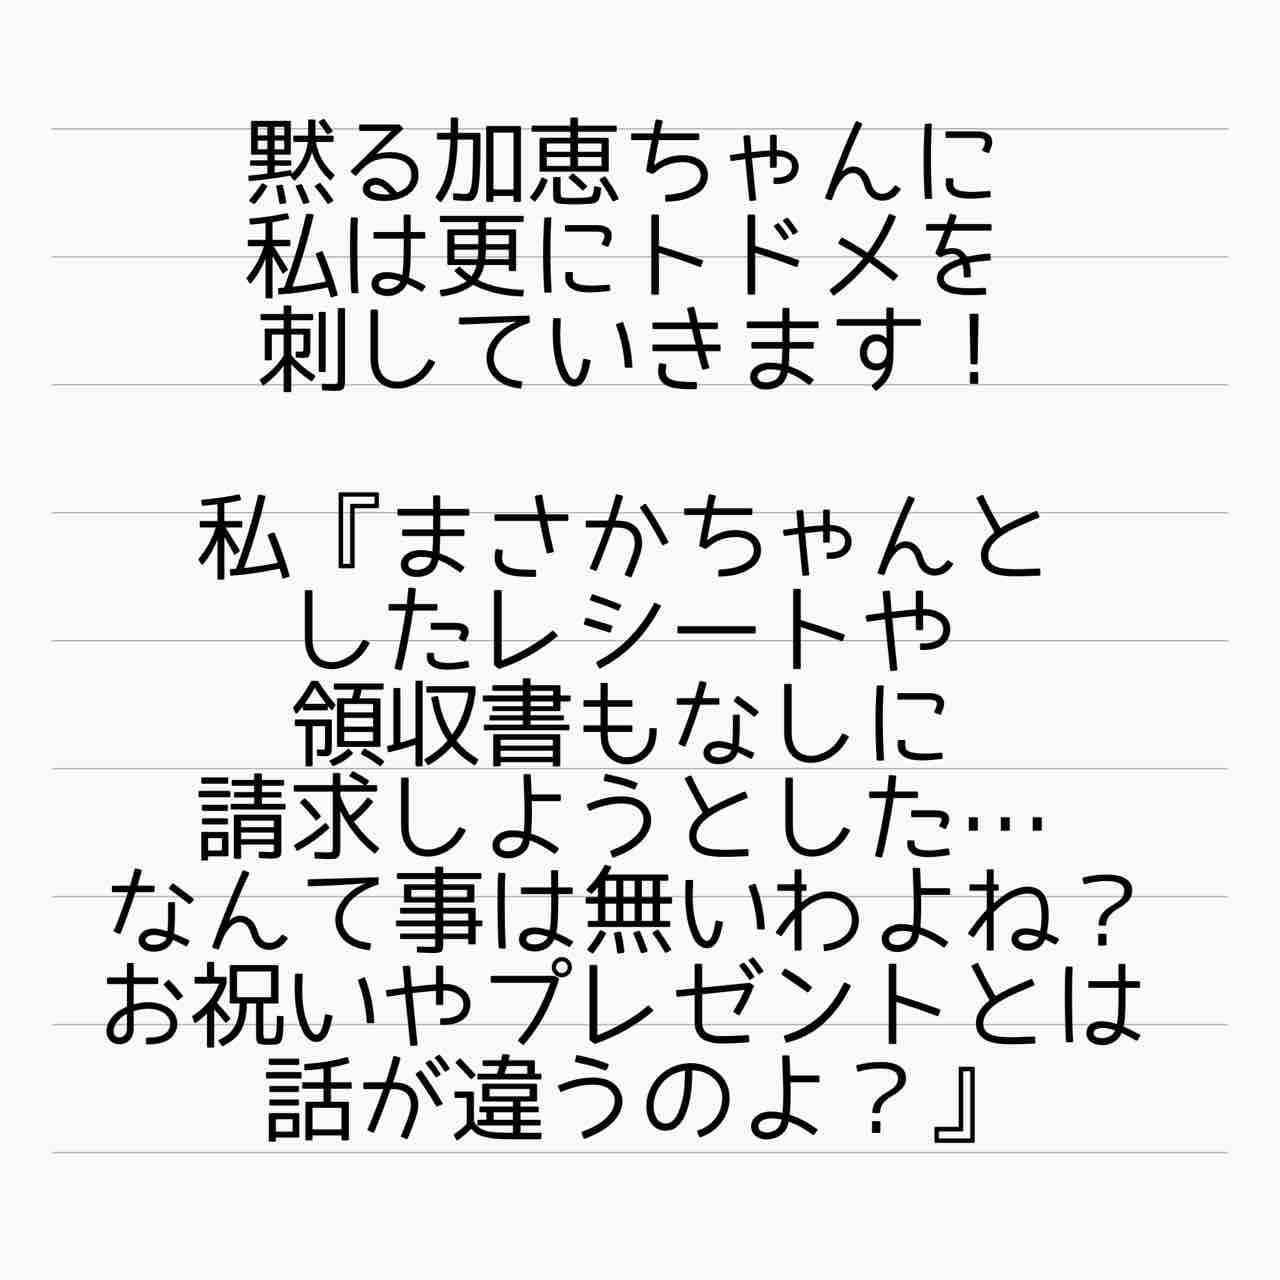 黙る加恵ちゃんに
私は更にトドメを
刺していきます！
私『まさかちゃんと
したレシートや
領収書もなしに
請求しようとした…
なんて事は無いわよね？
お祝いやプレゼントとは
話が違うのよ？』